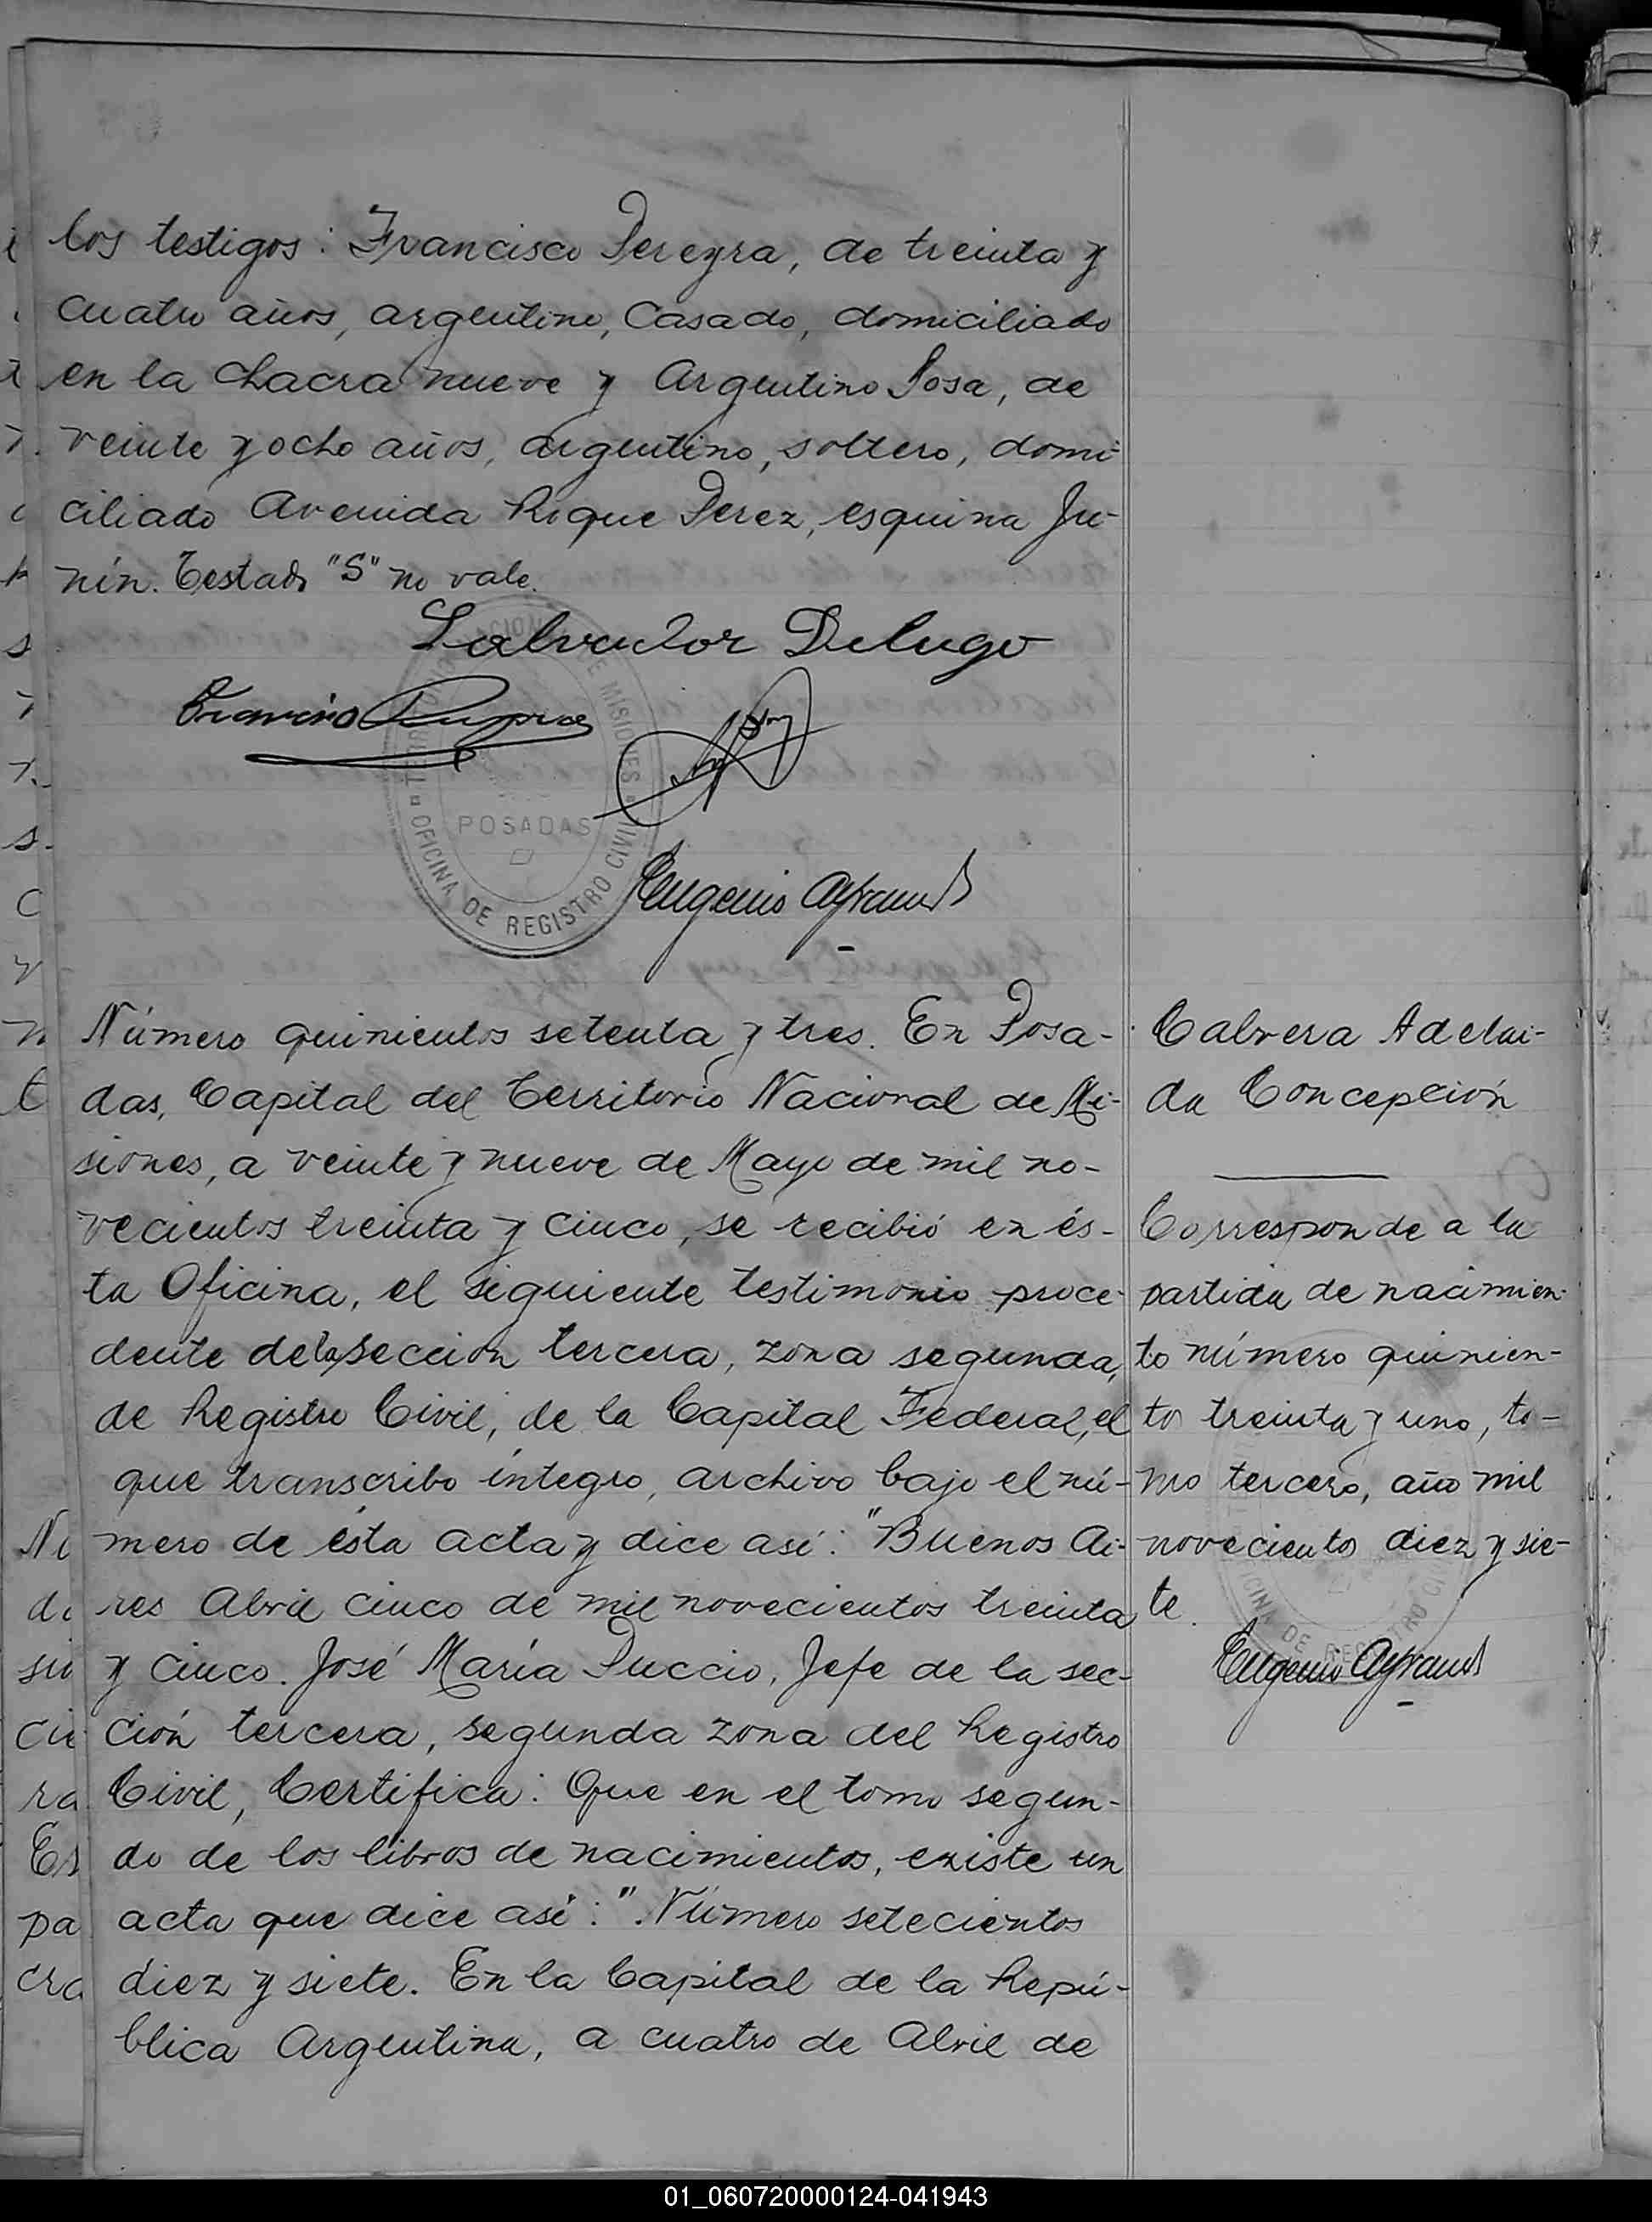 los testigos: Francisco Pereyra, de treinta y
cuatro años, argentino, Casado, domiciliado
en la chacra nueve y Argentino Sosa, de
veinte y ocho años, argentino, soltero, domi-
ciliado Avenida Roque Perez, esquina Ju-
nín. Testado "S" no vale.
Salvador Delugo
POSADAS
OFICINA DE REGISTRO CIVIL
DE MISIONES
Eugenio
Número quinientos setenta y tres. En Posa-
das, Capital del Territorio Nacional de Mi-
siones, a veinte y nueve de Mayo de mil no-
vecientos treinta y cinco, se recibió en és-
ta Oficina, el siguiente testimonio proce-
dente de la sección tercera, zona segunda,
de Registro Civil, de la Capital Federal, el
que transcribo íntegro, archivo bajo el nú-
mero de ésta acta y dice así: "Buenos Ai-
res Abril cinco de mil novecientos treinta
y cinco. José María Puccio, Jefe de la sec-
ción tercera, segunda zona del Registro
Civil, Certifica: Que en el tomo segun-
do de los libros de nacimientos, existe un
acta que dice así: ". Número setecientos
diez y siete. En la Capital de la Repú-
blica Argentina, a cuatro de Abril de
Cabrera Adelai-
da Concepción
Corresponde a la
partida de nacimien-
to número quinien-
tos treinta y uno, to-
mo tercero, año mil
novecientos diez y sie-
te.
Eugenio
01_060720000124-041943